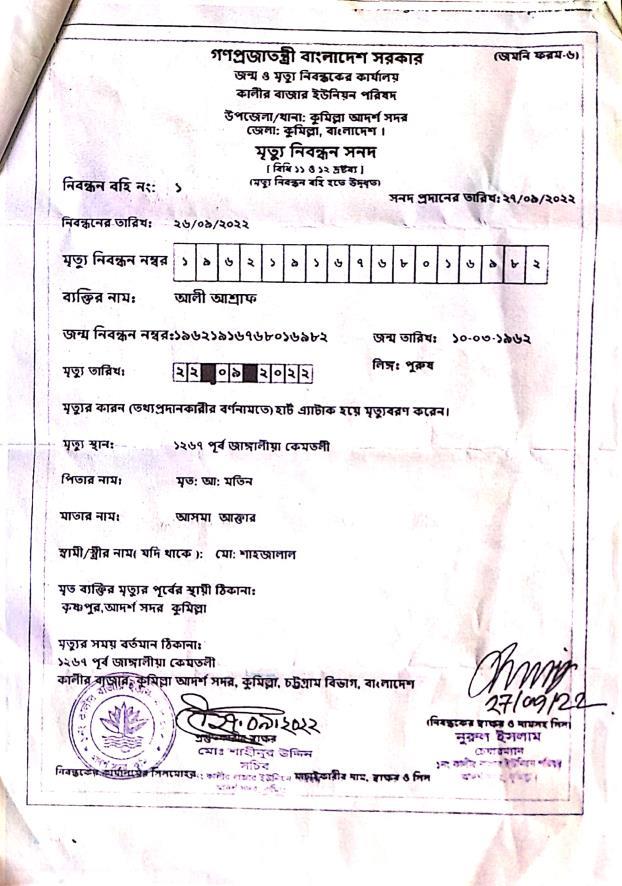 গণপ্রজাতন্ত্রী বাংলাদেশ সরকার
(জমনি ফরম-৬)
জন্ম ও মৃত্যু নিবন্ধকের কার্যালয়
কালীর বাজার ইউনিয়ন পরিষদ
উপজেলা/থানা: কুমিল্লা আদর্শ সদর
জেলা: কুমিল্লা, বাংলাদেশ ।
মৃত্যু নিবন্ধন সনদ
[ বিধি ১১ ও ১২ দ্রষ্টব্য ]
(মৃত্যু নিবন্ধন বহি হতে উদ্বৃত)
নিবন্ধন বহি নং: ১
সনদ প্রদানের তারিখ: ২৭/০৯/২০২২
নিবন্ধনের তারিখ: ২৬/০৯/২০২২
মৃত্যু নিবন্ধন নম্বর ১ ৯ ৬ ২ ১ ৯ ১ ৬ ৭ ৬ ৮ ০ ১ ৬ ৯ ৮ ২
ব্যক্তির নাম: আলী আশ্রাফ
জন্ম নিবন্ধন নম্বর:১৯৬২১৯১৬৭৬৮০১৬৯৮২ জন্ম তারিখ: ১০-০৩-১৯৬২
মৃত্যু তারিখ: ২২ ০৯ ২০২২ লিঙ্গ: পুরুষ
মৃত্যুর কারন (তথ্যপ্রদানকারীর বর্ণনামতে) হার্ট এ্যাটাক হয়ে মৃত্যুবরণ করেন।
মৃত্যু স্থান: ১২৬৭ পূর্ব জাঙ্গালীয়া কেমতলী
পিতার নাম: মৃত: আ: মতিন
মাতার নাম: আসমা আক্তার
স্বামী/স্ত্রীর নাম( যদি থাকে ): মো: শাহজালাল
মৃত ব্যক্তির মৃত্যুর পূর্বের স্থায়ী ঠিকানা:
কৃষ্ণপুর,আদর্শ সদর কুমিল্লা
মৃত্যুর সময় বর্তমান ঠিকানা:
১২৬৭ পূর্ব জাঙ্গালীয়া কেমতলী
কালীর বাজার, কুমিল্লা আদর্শ সদর, কুমিল্লা, চট্টগ্রাম বিভাগ, বাংলাদেশ
27/09/22
০৯/২০২২
(নিবন্ধকের স্বাক্ষর ও নামসহ সিল)
নুরুল ইসলাম
চেয়ারম্যান
মোঃ শাহীনুর উদ্দিন
সচিব
নিবন্ধকের কার্যালয়ের সিলমোহর
যাচাইকারীর নাম, স্বাক্ষর ও সিল